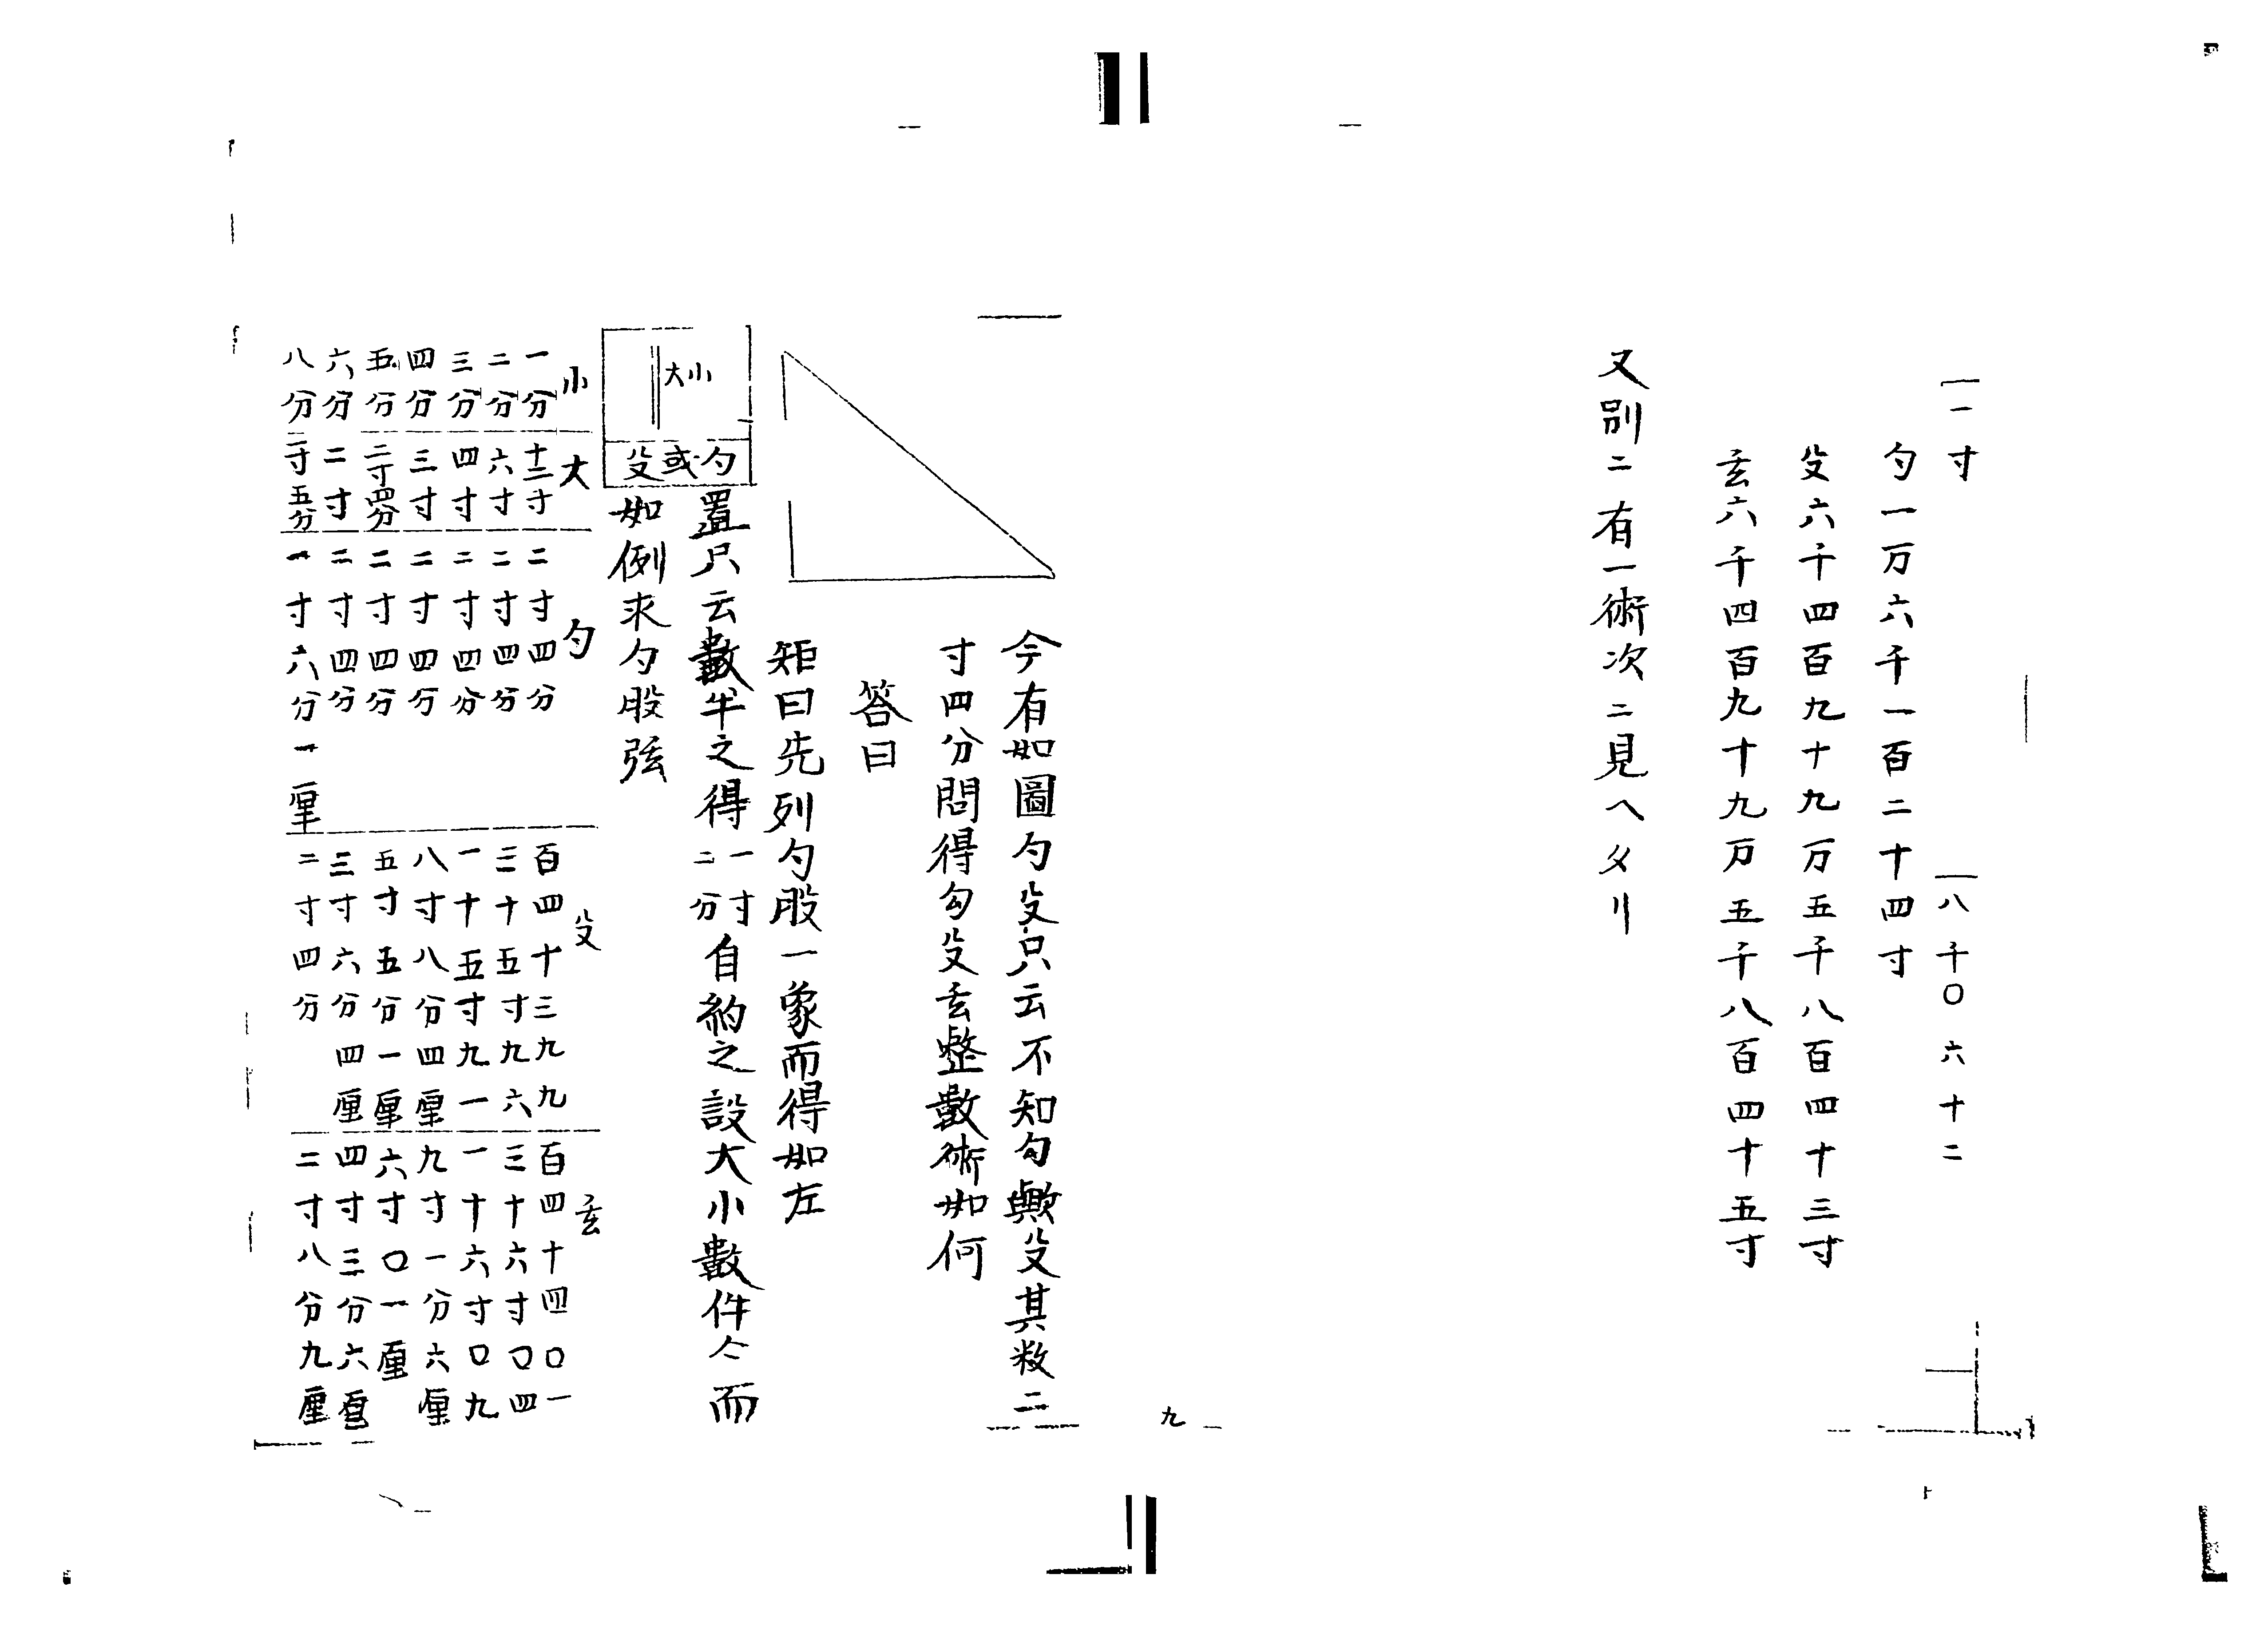 一寸 八千〇六十二
勺一万六千一百二十四寸
殳六千四百九十九万五千八百四十三寸
玄六千四百九十九万五千八百四十五寸
又別ニ有一術次ニ見ヘタリ
九
今有如圖勺殳只云不知勾與殳其数二
寸四分問得勾殳玄整數術如何
答曰
矩曰先列勺股一象而得如左
小大
勺或殳
置只云數半之得一寸二分自約之設大小數件仝而
如例求勺股弦
小 大 勺 殳 玄
一分 十二寸 二寸四分 百四十三九九 百四十四〇一
二分 六寸 二寸四分 三十五寸九六 三十六寸〇四
三分 四寸 二寸四分 一十五寸九一 一十六寸〇九
四分 三寸 二寸四分 八寸八分四厘 九寸一分六厘
五分 二寸四分 二寸四分 五寸五分一厘 六寸〇一厘
六分 二寸 二寸四分 三寸六分四厘 四寸三分六厘
八分 二寸五分 一寸六分一厘 二寸四分 二寸八分九厘